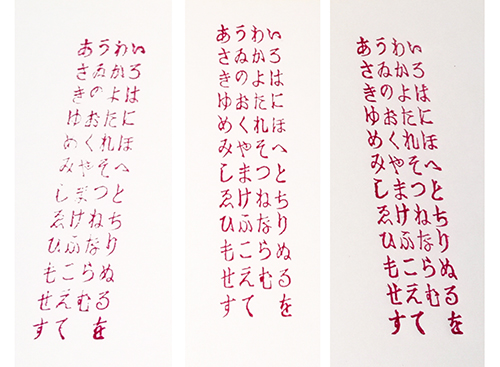 いろはにほへとちりぬるを
わかよたれそつねならむ
うゐのおくやまけふこえて
あさきゆめみしゑひもせす
いろはにほへとちりぬるを
わかよたれそつねならむ
うゐのおくやまけふこえて
あさきゆめみしゑひもせす
いろはにほへとちりぬるを
わかよたれそつねならむ
うゐのおくやまけふこえて
あさきゆめみしゑひもせす